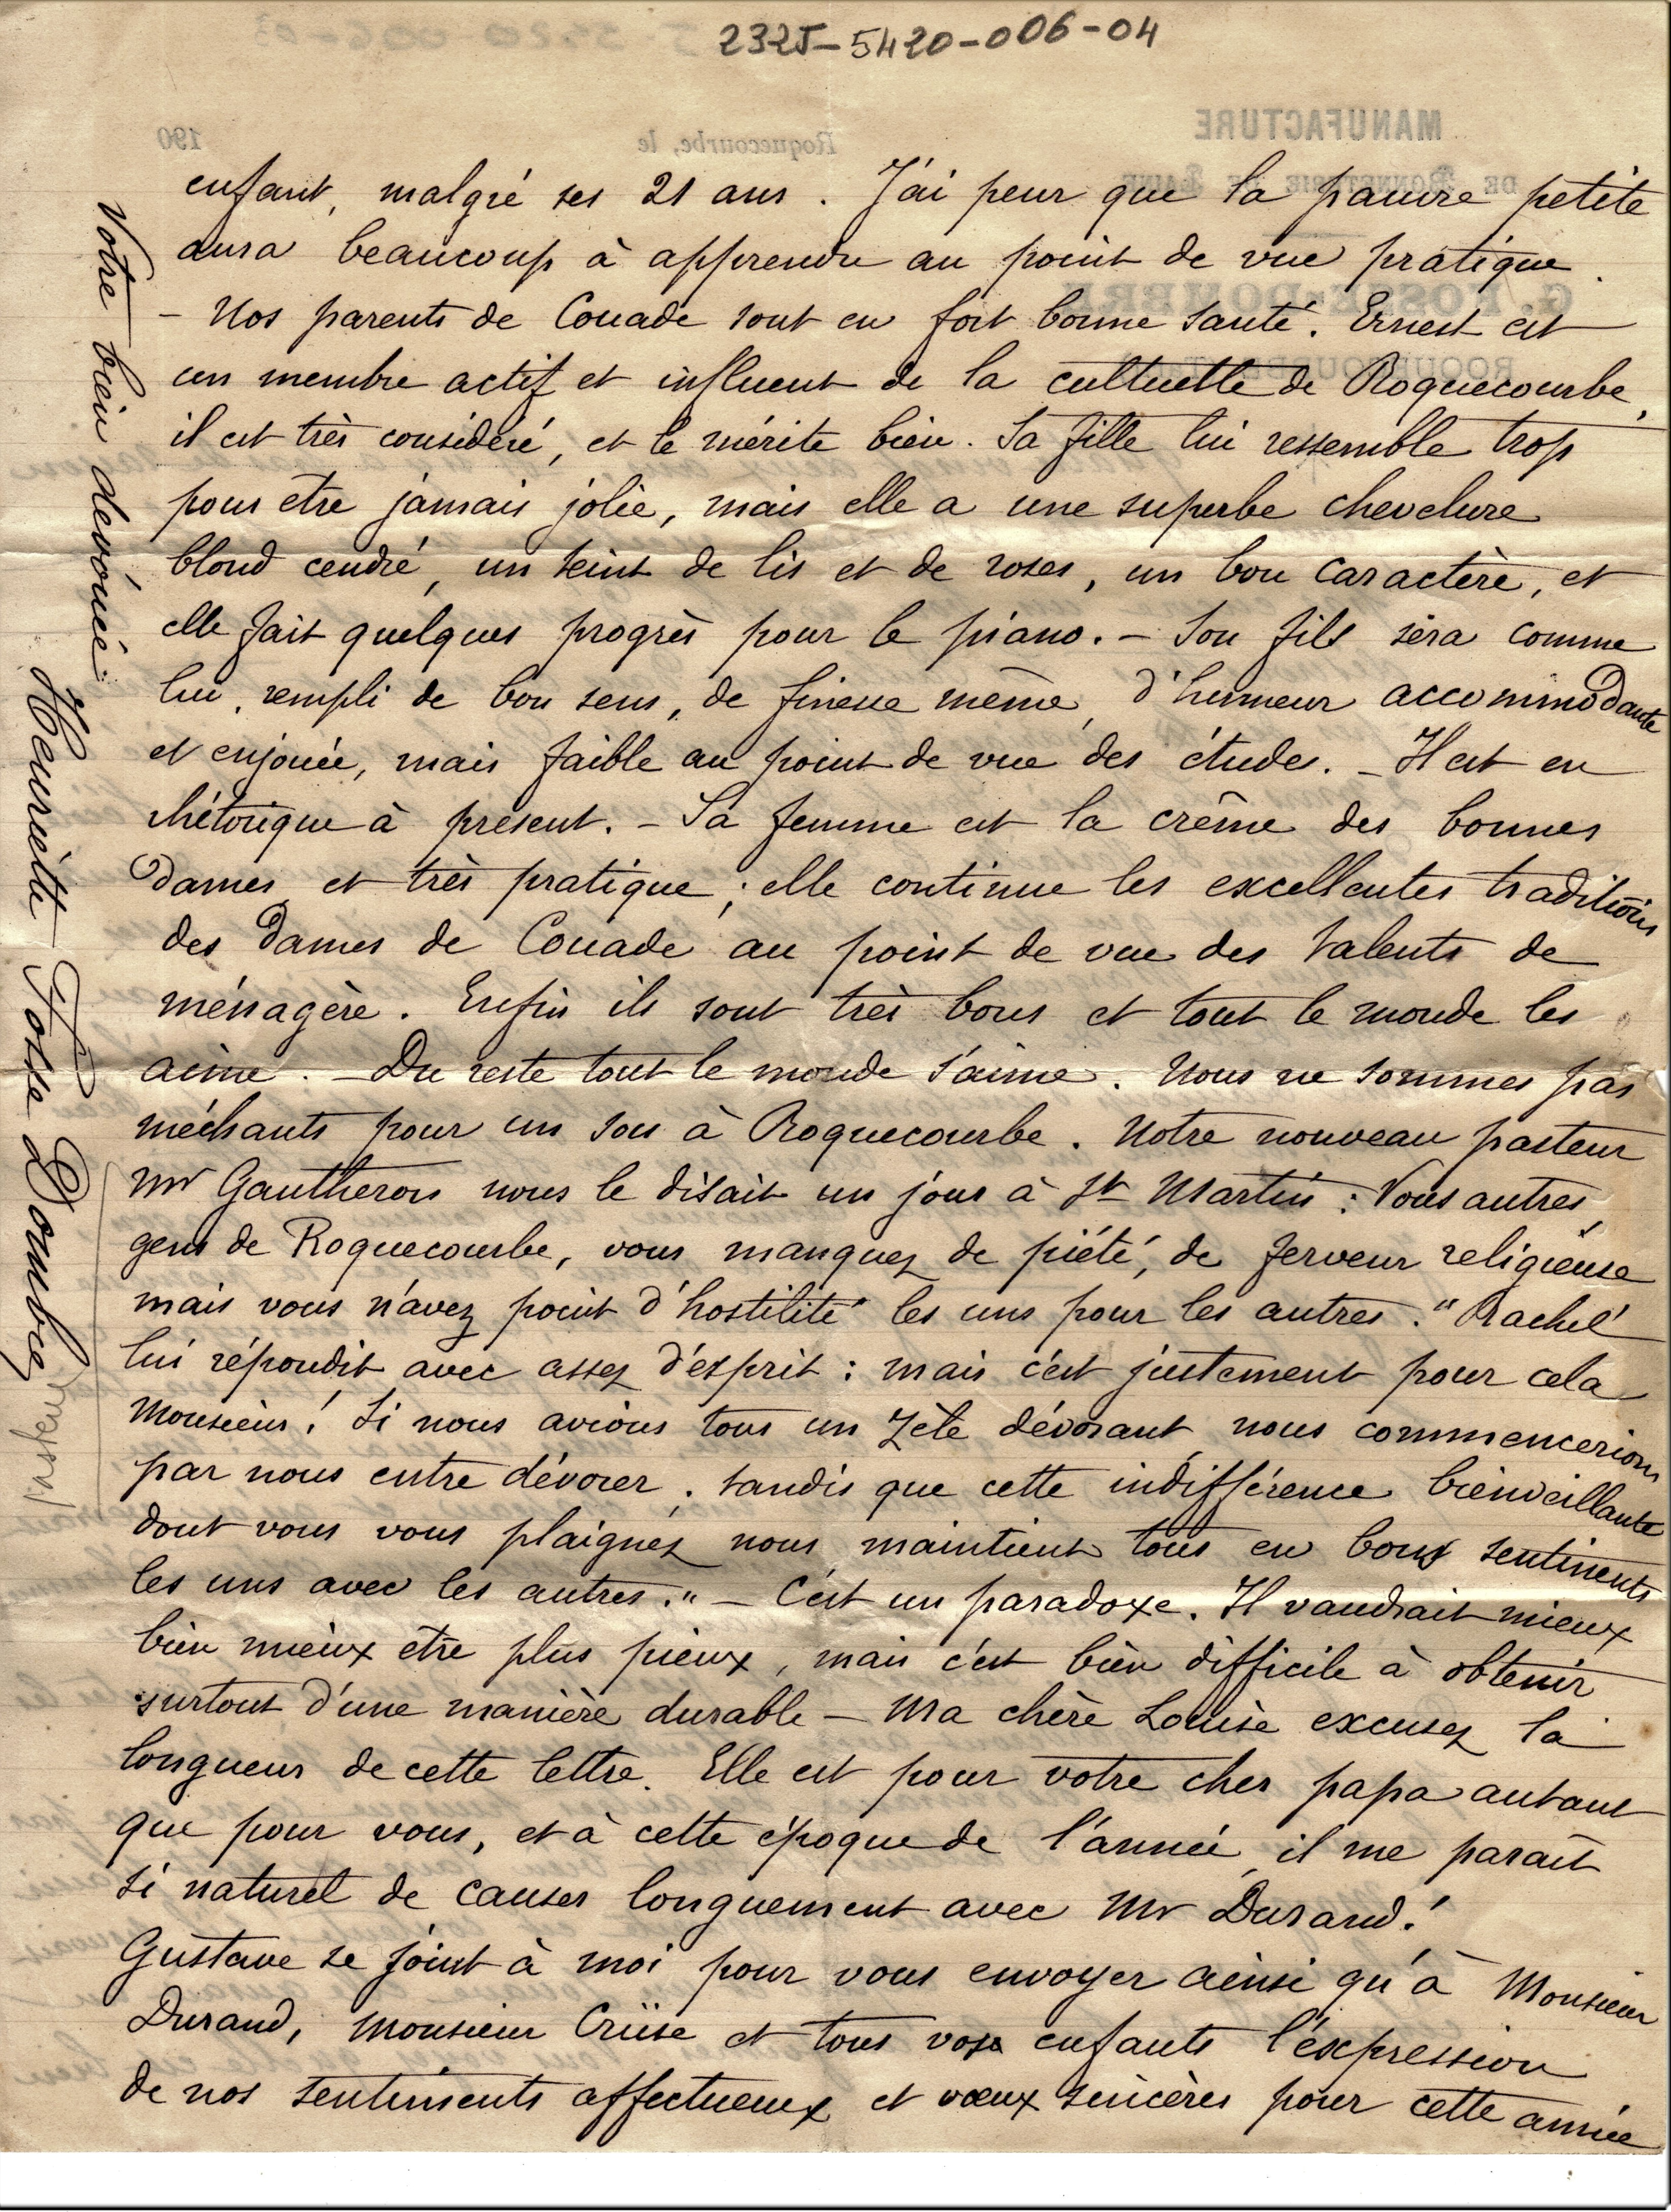 2325-5420-006-04
enfant, malgré ses 21 ans. J'ai peur que la pauvre petite
aura beaucoup à apprendre au point de vue pratique.
- Nos parents de Couade sont en fort bonne santé. Ernest est
un membre actif et influent de la cultuelle de Roquecourbe,
il est très considéré, et le mérite bien. Sa fille lui ressemble trop
pour être jamais jolie, mais elle a une superbe chevelure
blond cendré, un teint de lis et de roses, un bon caractère, et
elle fait quelques progrès pour le piano. - Son fils sera comme
lui, rempli de bon sens, de finesse même, d'humeur accommodante
et enjouée, mais faible au point de vue des études. - Il est en
rhétorique à présent. - Sa femme est la crême des bonnes
dames et très pratique ; elle continue les excellentes traditions
des dames de Couade au point de vue des talents de
ménagère. Enfin ils sont très bons et tout le monde les
aime. - Du reste tout le monde s'aime. Nous ne sommes pas
méchants pour un sou à Roquecourbe. Notre nouveau pasteur
Mr Gautheron nous le disait un jour à St Martin : Vous autres,
gens de Roquecourbe, vous manquez de piété, de ferveur religieuse
mais vous n'avez point d'hostilité les uns pour les autres." Rachel
lui répondit avec assez d'esprit : mais c'est justement pour cela
Monsieur ! Si nous avions tous un zèle dévorant, nous commencerions
par nous entre dévorer, tandis que cette indifférence bienveillante
dont vous vous plaignez nous maintient tous en bons sentiments
les uns avec les autres." - C'est un paradoxe. Il vaudrait mieux
bien mieux être plus pieux, mais c'est bien difficile à obtenir
surtout d'une manière durable - Ma chère Louise excusez la
longueur de cette lettre. Elle est pour votre cher papa autant
que pour vous, et à cette époque de l'année, il me paraît
si naturel de causer longuement avec Mr Durand !
Gustave se joint à moi pour vous envoyer ainsi qu'à Monsieur
Durand, Monsieur Crüse et tous vos enfants l'expression
de nos sentiments affectueux et voeux sincères pour cette année
Votre bien dévouée
Henriette Fosse Dombre
pasteur
MANUFACTURE
DE BONNETERIE DE LAINE
G. FOSSE-DOMBRE
ROQUECOURBE
Roquecourbe, le
190